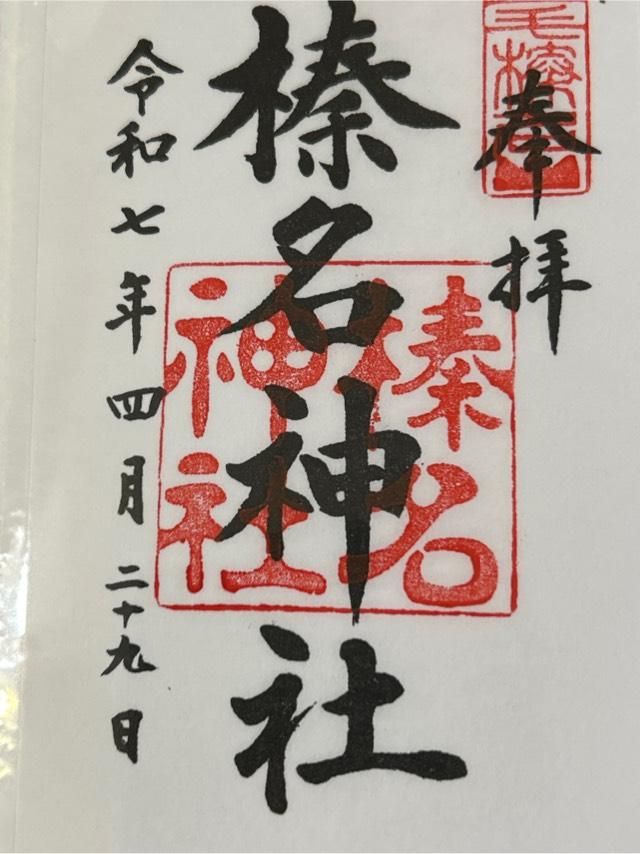 奉拝
榛名神社
榛名
神社
令和七年四月二十九日